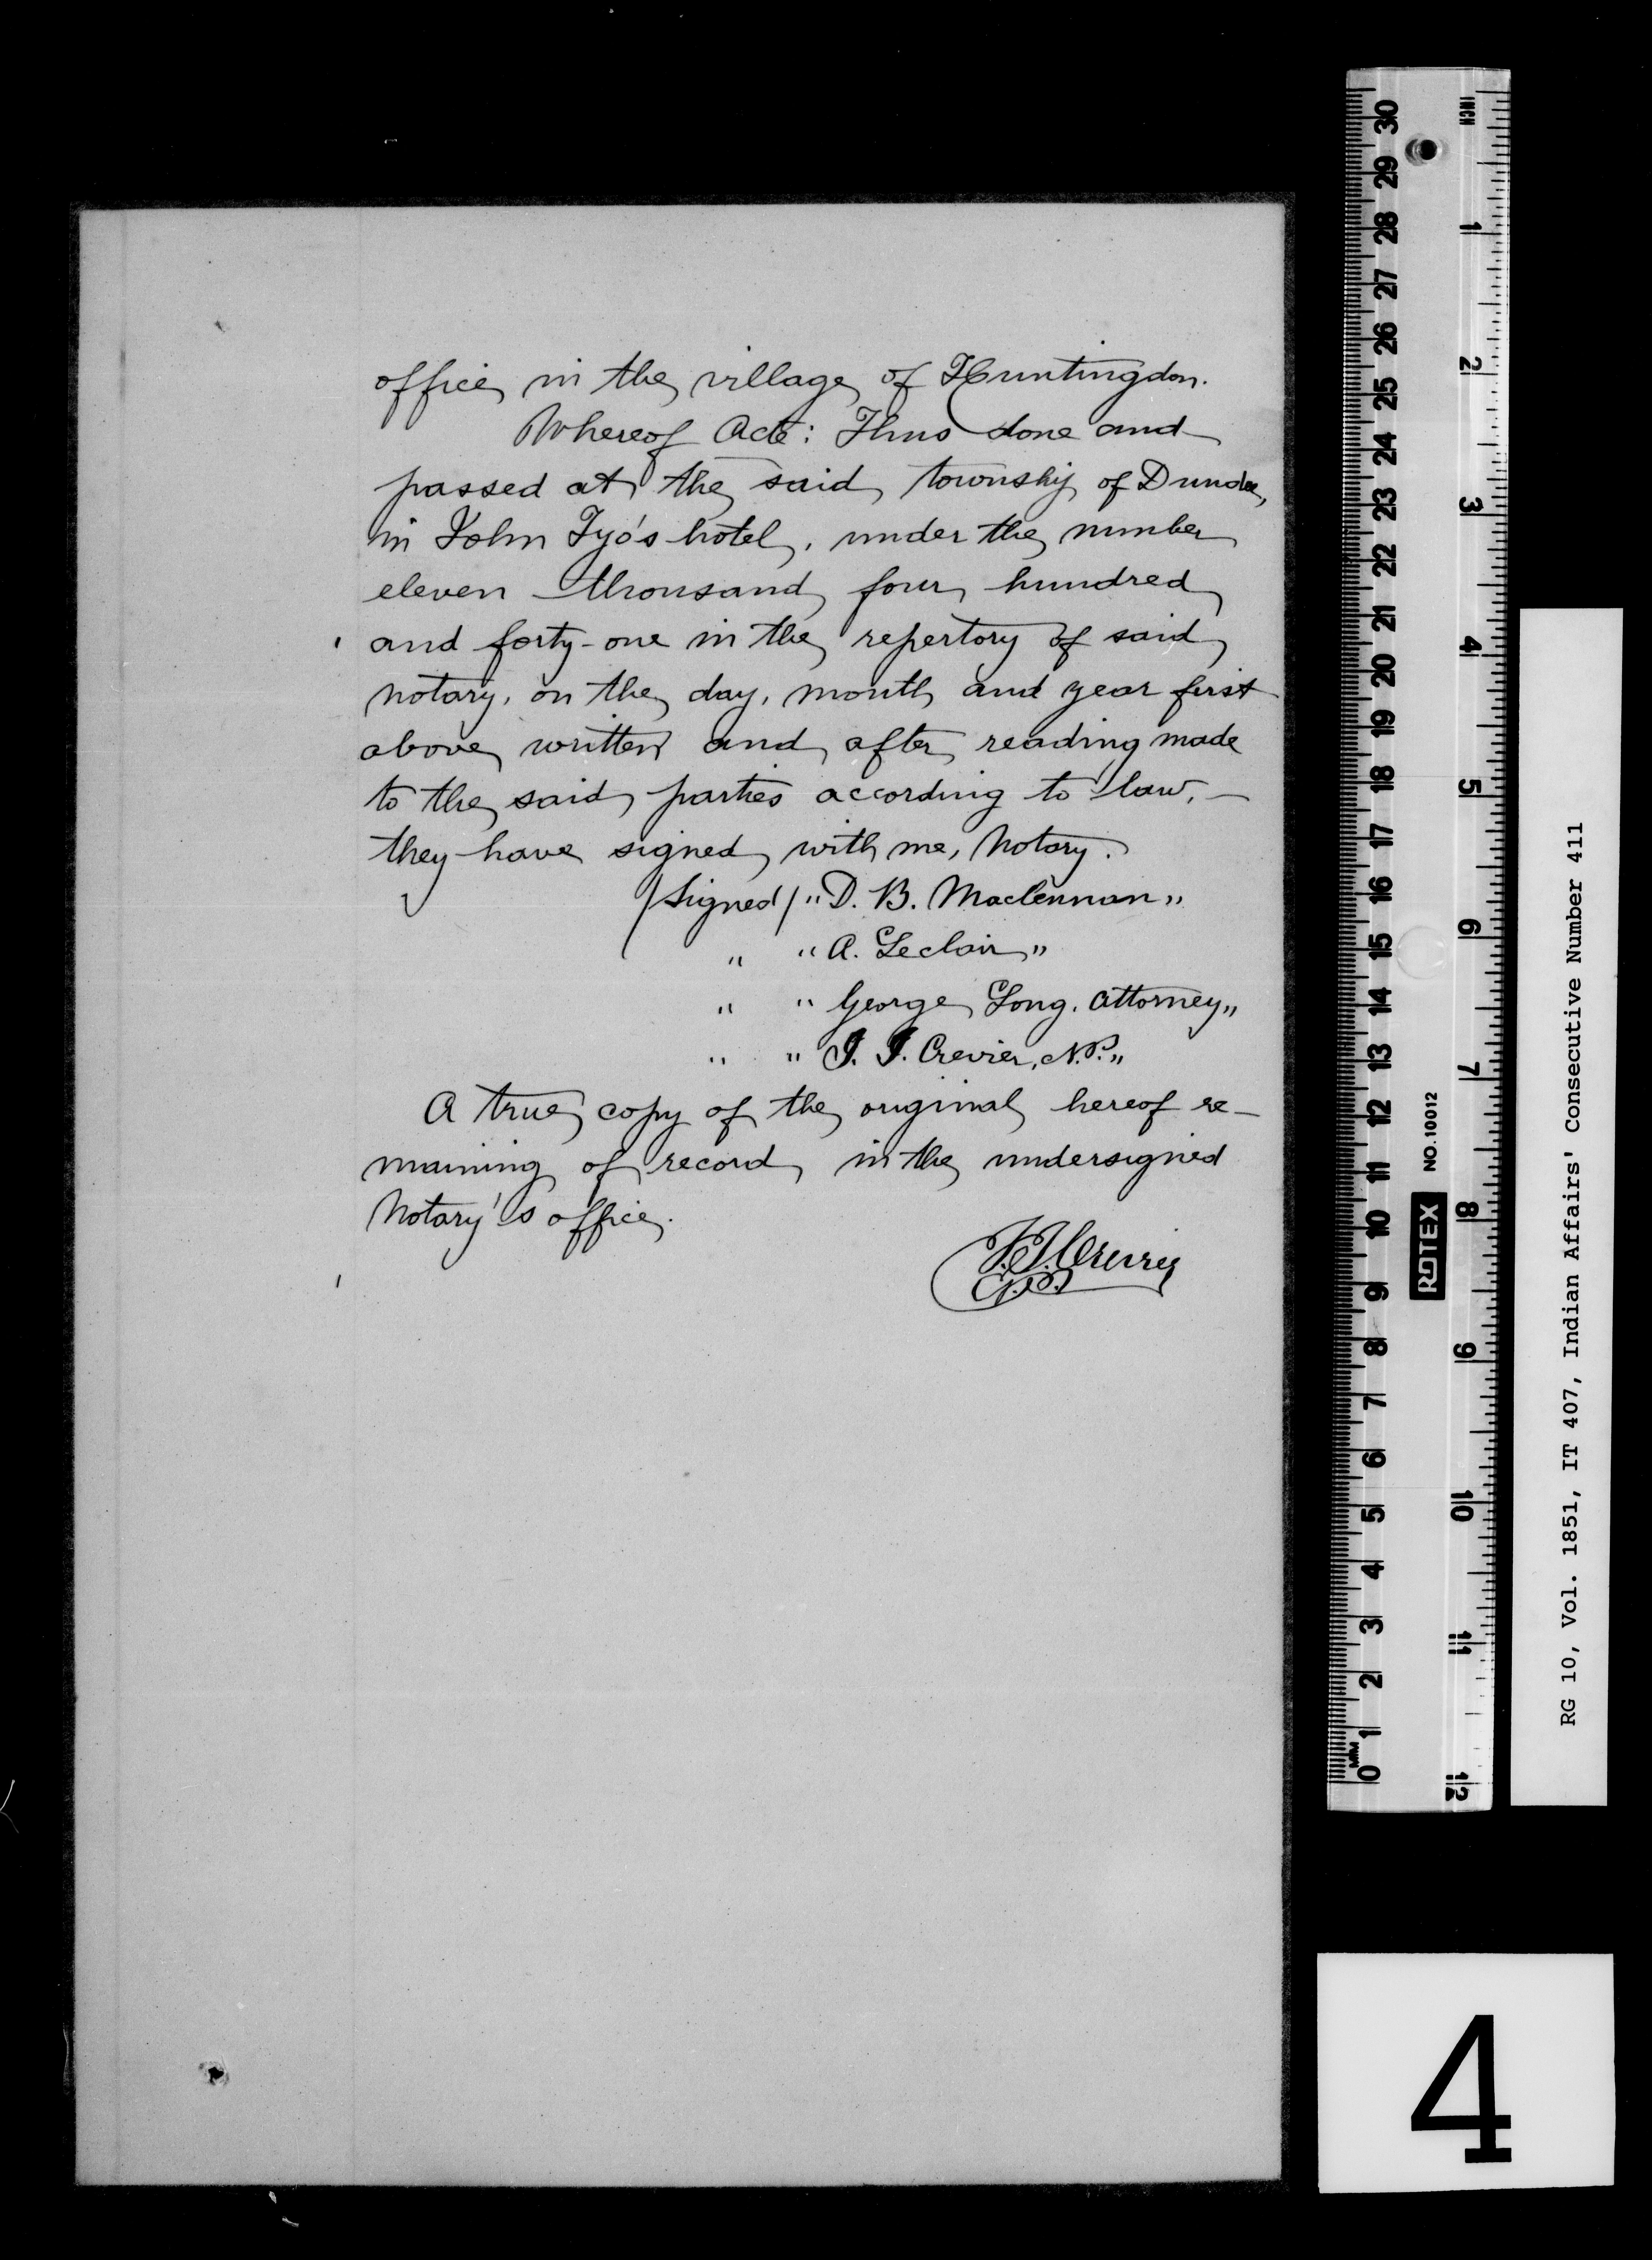 office in the village of Huntingdon.
Whereof Acte: Thus done and
passed at the said township of Dundee,
in John Tyo's hotel, under the number
eleven thousand four hundred
and forty-one in the repertory of said
notary, on the day, month and year first
above written and after reading made
to the said parties according to law, —
they have signed with me, Notary.
/Signed/ "D. B. Maclennan"
" "A. Leclair"
" "George Long, Attorney"
" "I. I. Crevier, N.P."
A true copy of the original hereof re-
maining of record in the undersigned
Notary's office.
I.I. Crevier
N.P.
RG 10, Vol. 1851, IT 407, Indian Affairs' Consecutive Number 411
INCH
1 2 3 4 5 6 7 8 9 10 11 12
30 29 28 27 26 25 24 23 22 21 20 19 18 17 16 15 14 13 12 11 10 9 8 7 6 5 4 3 2 1 0
MM
ROTEX NO. 10012
4